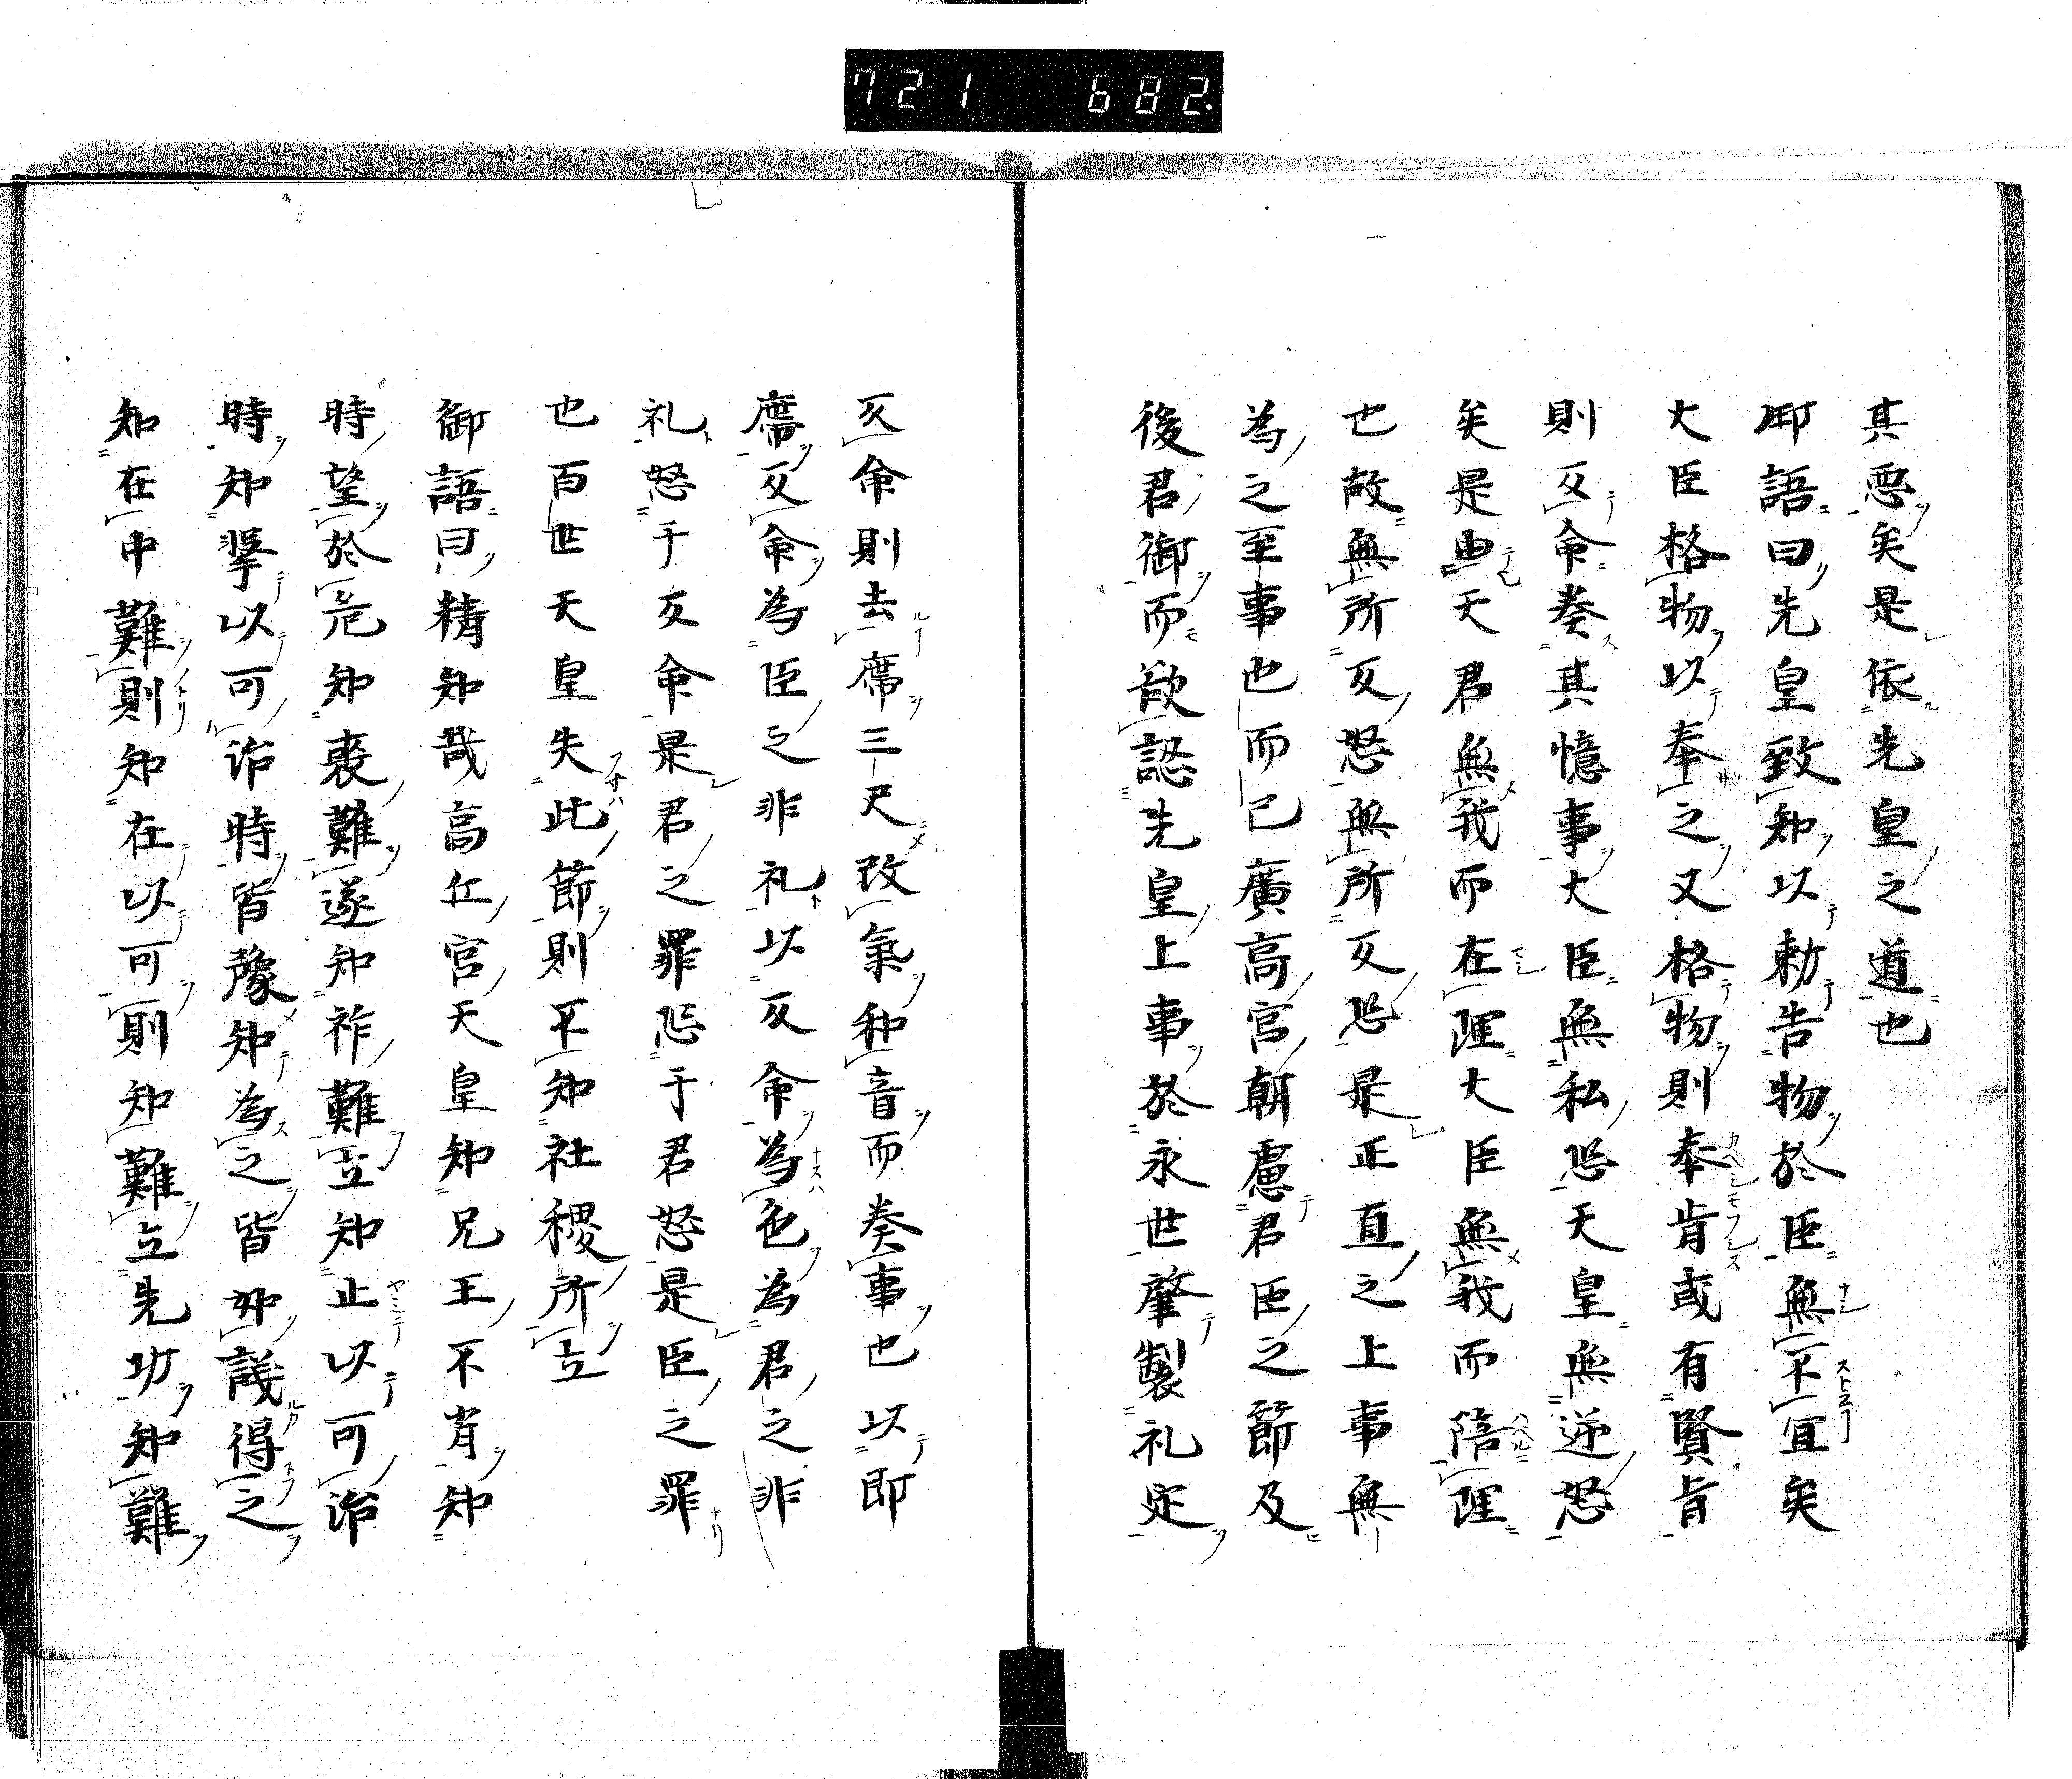 721 682.
其惡矣是依先皇之道也
御語曰先皇致知以勅告物於臣無不宜矣
大臣格物以奉之又格物則奉肯或有賢旨
則反命奏其憶事大臣無私恐天皇無逆怒
矣是由天君無我而在陛大臣無我而陪陛
也故無所反怒無所反恐是正直之上事無
為之至事也而已廣高宮朝慮君臣之節及
後君御而欲認先皇上事於永世肇製礼定
反命則去席三尺改氣和音而奏事也以即
席反命為臣之非礼以反命為色為君之非
礼怒于反命是君之罪恐于君怒是臣之罪
也百世天皇失此節則不知社稷所立
御語曰精知哉高仁宮天皇知兄王不肖知
時望於危知喪難遂知祚難立知止以可治
時知挙以可治時皆豫知為之皆如議得之
知在中難則知在以可則知難立先功知難